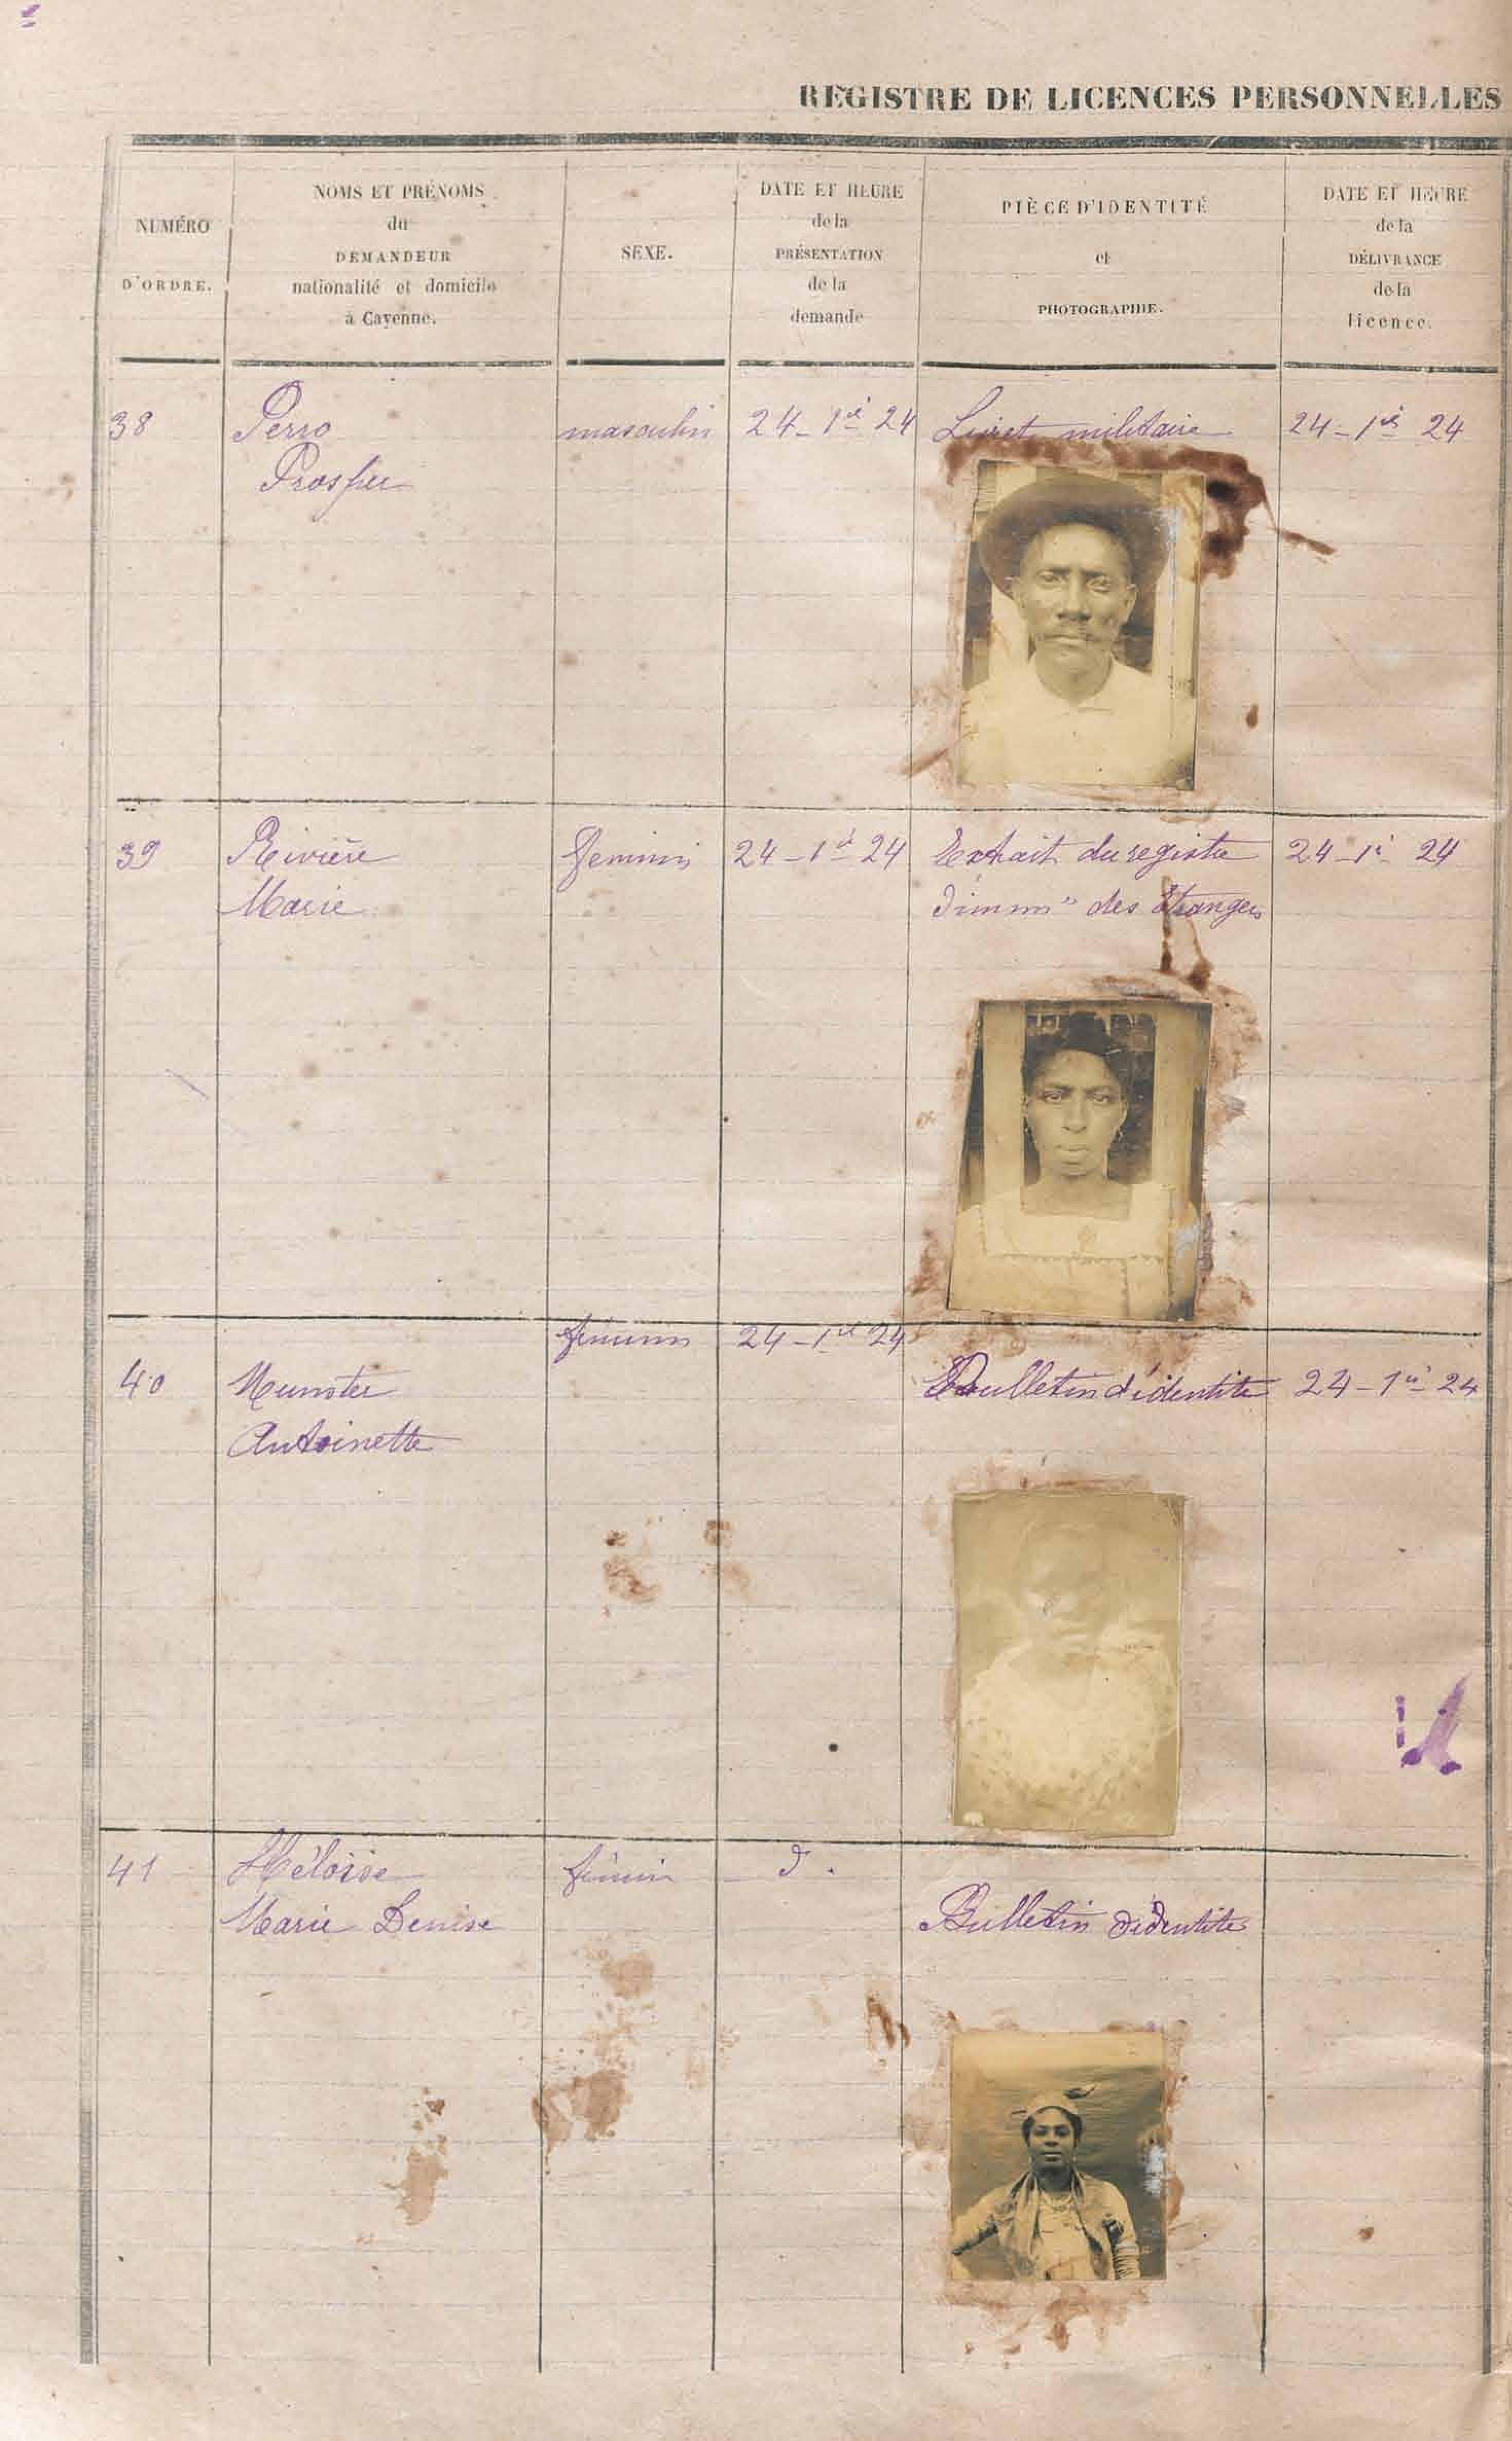 REGISTRE DE LICENCES PERSONNELLES
NUMÉRO
D'ORDRE.
NOMS ET PRÉNOMS
du
DEMANDEUR
nationalité et domicile
à Cayenne.
SEXE.
DATE ET HEURE
de la
PRÉSENTATION
de la
demande
PIÈCE D'IDENTITÉ
et
PHOTOGRAPHIE.
DATE ET HEURE
de la
DÉLIVRANCE
de la
licence.
38
Perro
Prosper
masculin
24-1er 24
Livret militaire
24-1er 24
39
Rivière
Marie
feminin
24-1er 24
Extrait du registre
d'imm^on des Etrangers
24-1er 24
40
Munster
Antoinette
féminin
24-1er 24
Bulletin d'identité
24-1er 24
41
Héloïse
Marie Denise
féminin
d°.
Bulletin d'identité